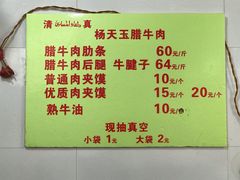 清 真
杨天玉腊牛肉
腊牛肉肋条 60元/斤
腊牛肉后腿 牛腱子 64元/斤
普通肉夹馍 10元/个
优质肉夹馍 15元/个 20元/个
熟牛油 10元/
现抽真空
小袋 1元 大袋 2元